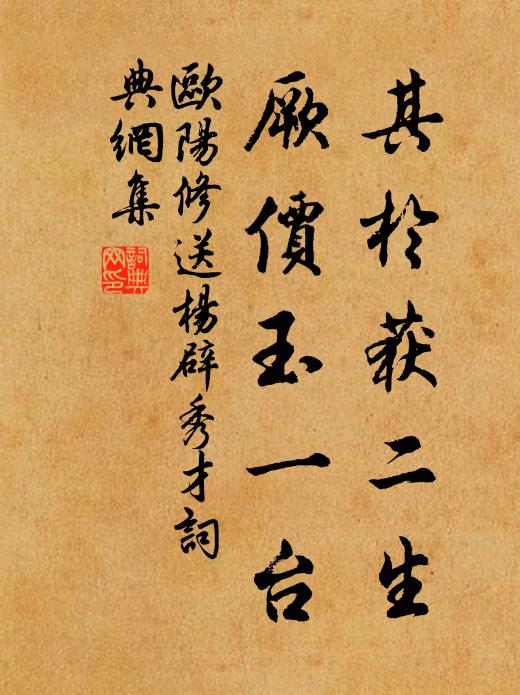 其於获二生
厥價玉一台
歐陽修送楊辟秀才詞
典網集
詞典網印